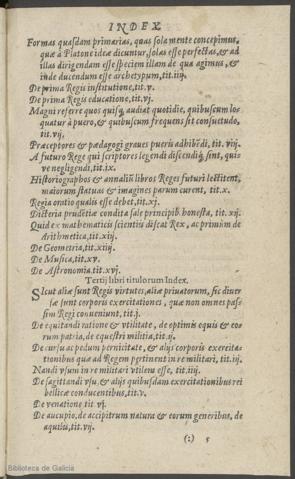 INDEX
Formas quasdam primarias, quas sola mente concepimus,
quæ à Platone ideæ dicuntur, solas esse perfectas, & ad
illas dirigendam esse speciem illam de qua agimus, &
inde ducendum esse archetypum, tit. iiij.
De prima Regis institutione, tit. v.
De prima Regis educatione, tit. vj.
Magni referre quos quisq; audiat quotidie, quibuscum lo-
quatur à puero, & quibuscum frequens sit consuetudo,
tit. vij,
Præceptores & pædagogi graues pueris adhibēdi, tit. viij.
A futuro Rege qui scriptores legendi discendiq́; sint, quis-
ve negligendi, tit. ix.
Historiographos & annaliū libros Reges futuri lectitent,
maiorum statuas & imagines parum curent, tit. x.
Regia oratio qualis esse debet, tit. xj.
Dicteria prudētiæ condita sale principib. honesta, tit. xij.
Quid ex mathematicis scientiis discat Rex, ac primùm de
Arithmetica, tit. xiij.
De Geometria, tit. xiiij.
De Musica, tit. xv.
De Astronomia, tit. xvj.
Tertij libri titulorum Index.
SIcut aliæ sunt Regis virtutes, aliæ priuatorum, sic diuer-
sæ sunt corporis exercitationes, quæ non omnes pas-
sim Regi conueniunt, tit. j.
De equitandi ratione & vtilitate, de optimis equis & eo-
rum patria, de equestri militia, tit. ij.
De cursu ac pedum pernicitate, & aliis corporis exercita-
tionibus quæ ad Regem pertinent in re militari, tit. iij.
Nandi vsum in re militari vtilem esse, tit. iiij.
De sagittandi vsu, & aliis quibusdam exercitationibus rei
bellicæ conducentibus, tit. v.
De venatione tit. vj.
De aucupio, de accipitrum natura & eorum generibus, de
aquilis, tit. vij.
(:) 5
Biblioteca de Galicia